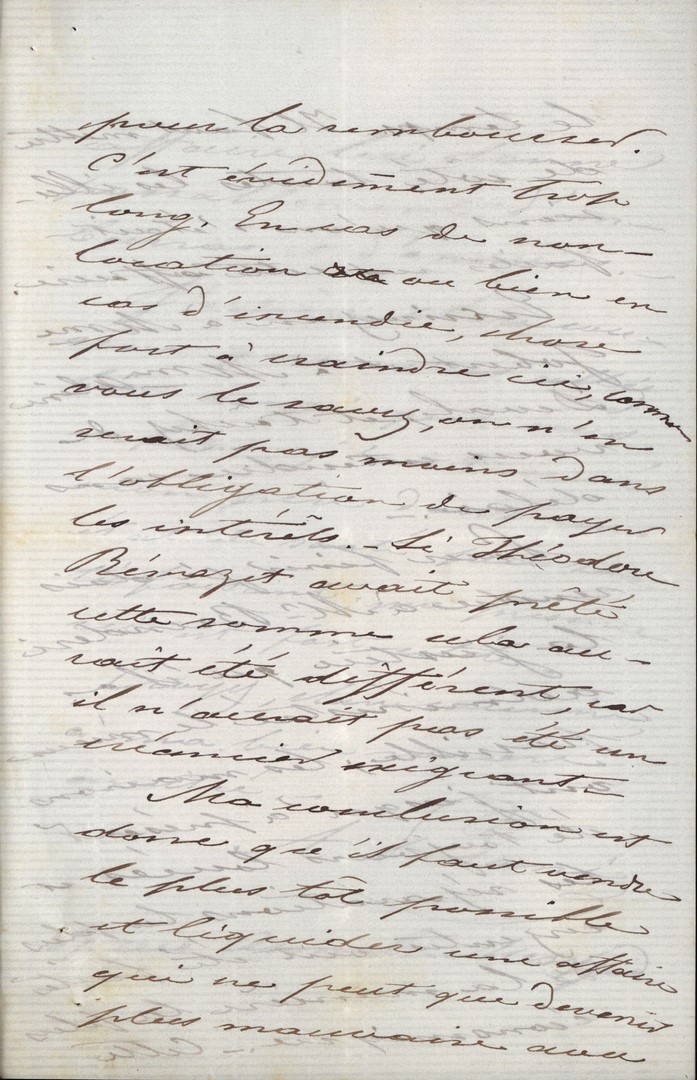 pour la rembourser.
C'est évidemment trop
long. En cas de non-
location ou bien en
cas d'incendie, chose
fort à craindre ici, comme
vous le savez, on n'en
serait pas moins dans
l'obligation de payer
les intérêts. - Si Théodore
Bénazet avait prêté
cette somme cela au-
rait été différent, car
il n'aurait pas été un
créancier exigeant. -
Ma conclusion est
donc qu'il faut vendre
le plus tôt possible
et liquider une affaire
qui ne peut que devenir
plus mauvaise avec